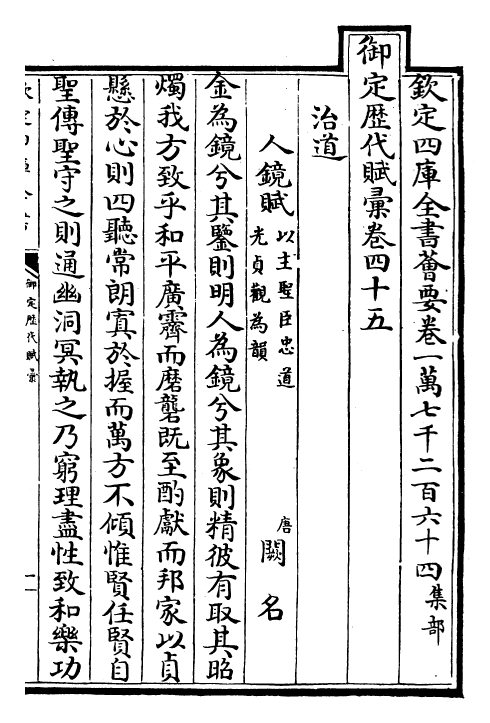 欽定四庫全書薈要卷一萬七千二百六十四集部
御定歴代賦彙卷四十五
治道
人鏡賦以主聖臣忠道光貞觀為韻 唐闕名
金為鏡兮其鑒則明人為鏡兮其象則精彼有取其昭
燭我方致乎和平廣霽而磨礱既至酌獻而邦家以貞
懸於心則四聽常朗寘於握而萬方不傾惟賢任賢自
聖傳聖守之則通幽洞冥執之乃窮理盡性致和樂功
御定歴代賦彙
一